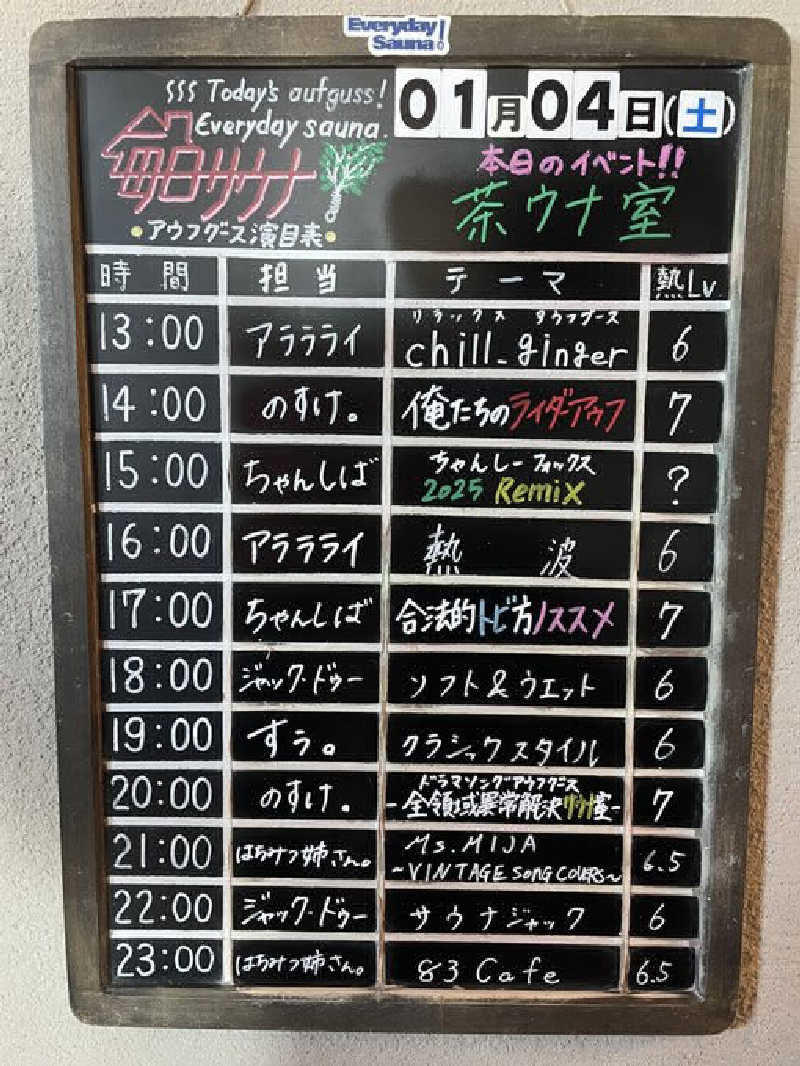 Everyday
Sauna!
Today's aufguss!
Everyday sauna.
毎日サウナ
アウフグース演目表
01月04日(土)
本日のイベント!!
茶ウナ室
時間 担当 テーマ 熱Lv.
リラックス アウフグース
13:00 アラララライ chill_ginger 6
14:00 のすけ。 俺たちのライダーアウフ 7
ちゃんしーフォックス
15:00 ちゃんしば 2025 Remix ?
16:00 アラララライ 熱 波 6
17:00 ちゃんしば 合法的トビ方ノススメ 7
18:00 ジャック・ドゥー ソフト&ウエット 6
19:00 すぅ。 クラシックスタイル 6
ドラマソングアウフグース
20:00 のすけ。 -全領域異常解決サウナ室- 7
Ms.MIJA
21:00 はちみつ姉さん。 ~VINTAGE SONG COVERS~ 6.5
22:00 ジャック・ドゥー サウナジャック 6
23:00 はちみつ姉さん。 83 Cafe 6.5